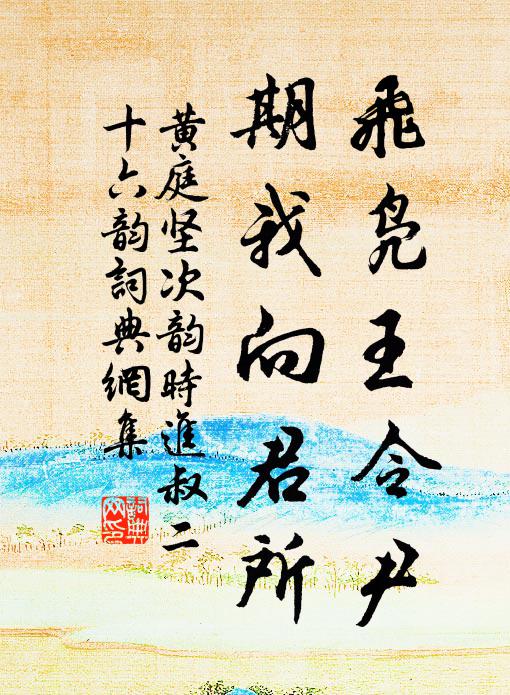 飛鳧王令尹
期我向君所
黄庭坚次韵時進叔二
十六韵詞典網集